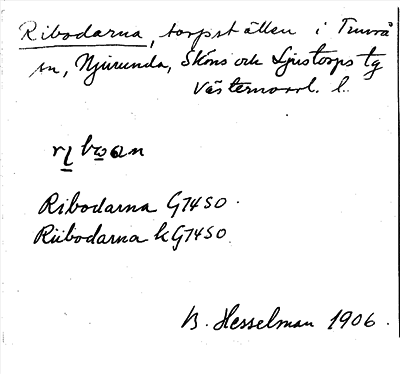 Ribodarna, torpställen i Tunrå
sn, Njurunda, Sköns och Ljustorps tg
Västernorrl. l.
Ribodarna G74SO.
Riibodarna kG74SO
B. Hesselman 1906.